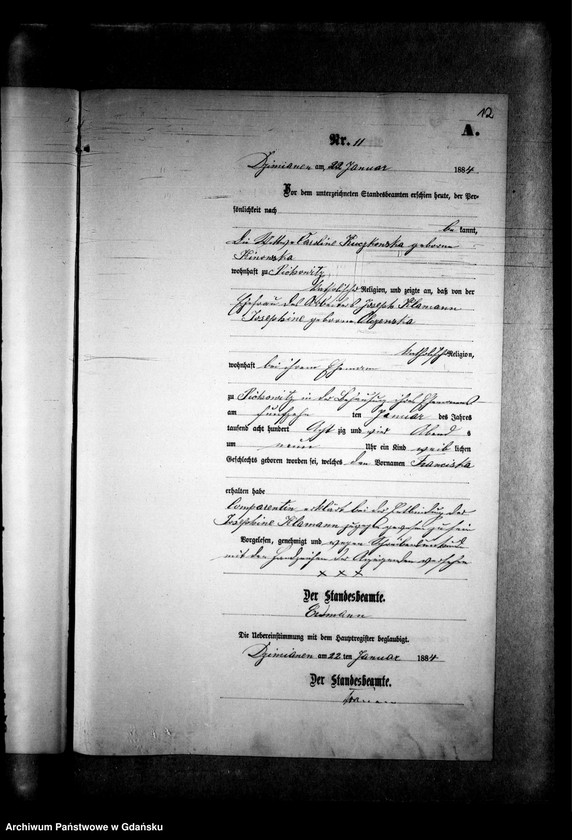 12
A.
Nr. 11
Dzimianen am 22 Januar 1884
Vor dem unterzeichneten Standesbeamten erschien heute, der Per-
sönlichkeit nach
be kannt,
die Wittwe Caroline Kuczkowska geborene
wohnhaft zu
katholischer Religion, und zeigte an, daß von der
Ehefrau des Arbeiters Joseph Klamann
Josephine geborene
katholischer Religion,
wohnhaft bei ihrem Ehemann
zu in der Behausung ihres Ehemannes
am fünfzehn ten Januar des Jahres
tausend acht hundert Acht zig und vier Abend s
um neun Uhr ein Kind weib lichen
Geschlechts geboren worden sei, welches den Vornamen Franciska
erhalten habe
Comparentin erklärt bei der Entbindung der
Josephine Klamann zugegen gewesen zu sein
Vorgelesen, genehmigt und wegen
mit den Handzeichen der Anzeigenden versehen
× × ×
Der Standesbeamte.
Erdmann
Die Uebereinstimmung mit dem Hauptregister beglaubigt.
Dzimianen am 22 ten Januar 1884
Der Standesbeamte.
Archiwum Państwowe w Gdańsku